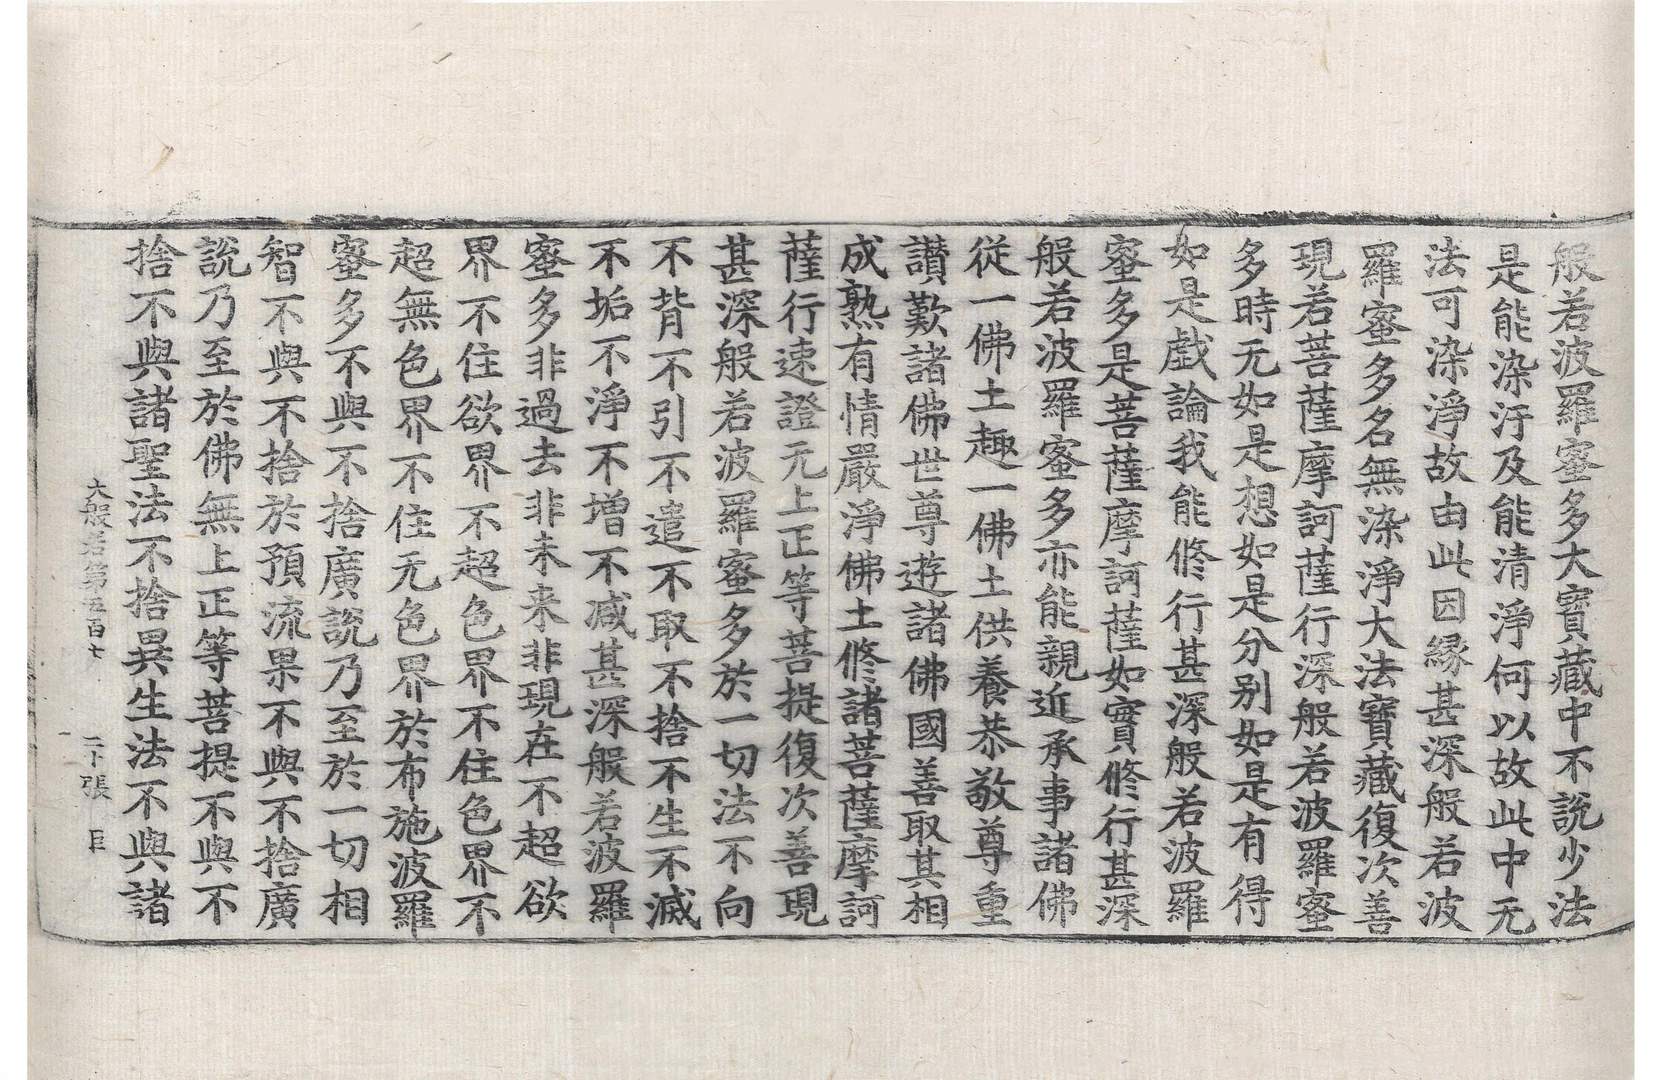 般若波羅蜜多大寶藏中不說少法
是能染汙及能清淨何以故此中无
法可染淨故由此因緣甚深般若波
羅蜜多名無染淨大法寶藏復次善
現若菩薩摩訶薩行深般若波羅蜜
多時无如是想如是分别如是有得
如是戲論我能修行甚深般若波羅
蜜多是菩薩摩訶薩如實修行甚深
般若波羅蜜多亦能親近承事諸佛
從一佛土趣一佛土供養恭敬尊重
讃歎諸佛世尊遊諸佛國善取其相
成熟有情嚴淨佛土修諸菩薩摩訶
薩行速證无上正等菩提復次善現
甚深般若波羅蜜多於一切法不向
不背不引不遣不取不捨不生不滅
不垢不淨不增不減甚深般若波羅
蜜多非過去非未来非現在不超欲
界不住欲界不超色界不住色界不
超無色界不住无色界於布施波羅
蜜多不與不捨廣說乃至於一切相
智不與不捨於預流果不與不捨廣
說乃至於佛無上正等菩提不與不
捨不與諸聖法不捨異生法不與諸
大般若第五百七 二下張 臣